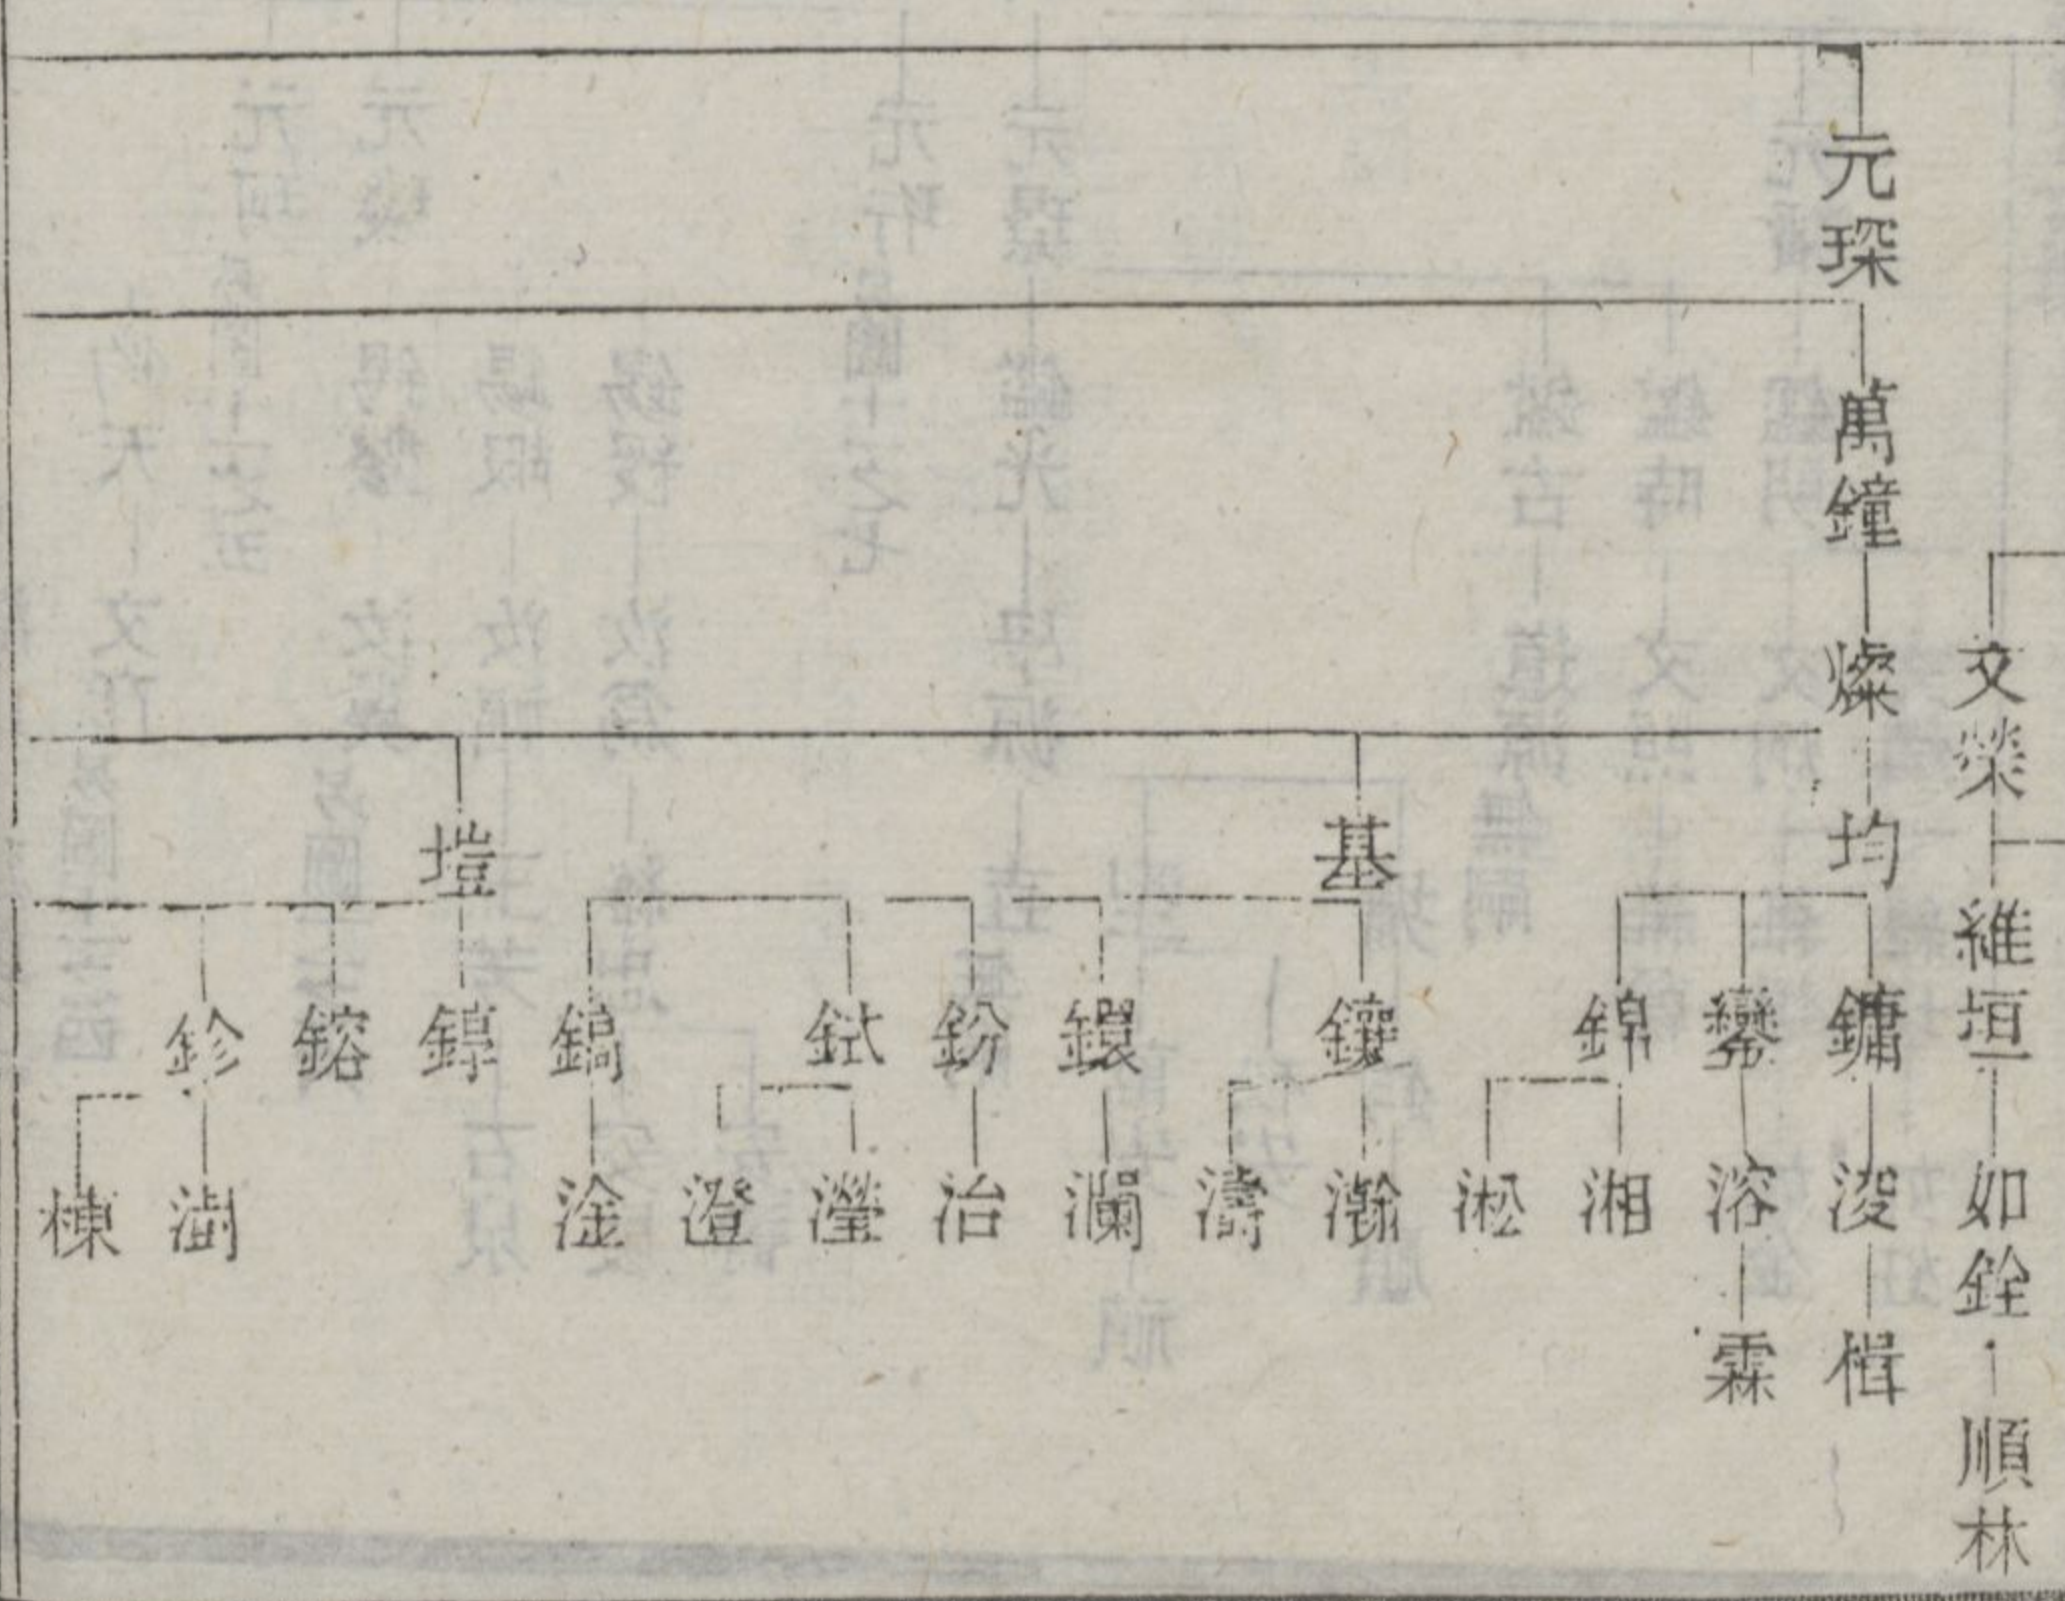 文榮 維垣 如銓 順林
元琛 萬鐘 燦 均 鏞 浚 楫
鑾 溶 霖
錦 湘
淞
基 鑲 瀚
濤
鐶 瀾
鈖 治
鉽 瀅
澄
鎬 淦
塏 錞
鎔
鉁 澍
棟